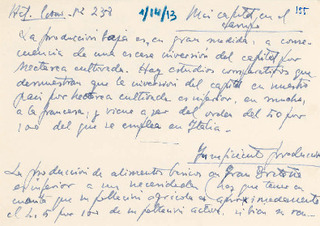 Mas capital en el campo 155
La producción baja es, en gran medida, a conse-
cuencia de una escasa inversión del capital por
hectarea cultivada. Hay estudios comparativos que
demuestran que la inversión del capital en nuestro
país por hectarea cultivada es inferior, en mucho,
a la francesa; y viene a ser del orden del 50 por
100 del que se emplea en Italia.
Insuficiente producción
La producción de alimentos en Gran Bretaña
es inferior a sus necesidades (hay que tener en
cuenta que su población agrícola es aproximadamente
el 4,5 por 100 de su población activa, si bien su ren-